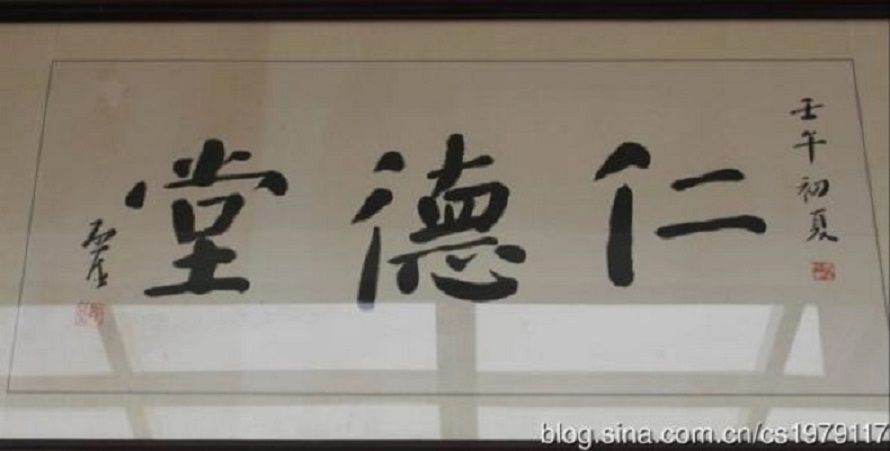 壬午初夏
仁德堂
blog.sina.com.cn/cs1979117